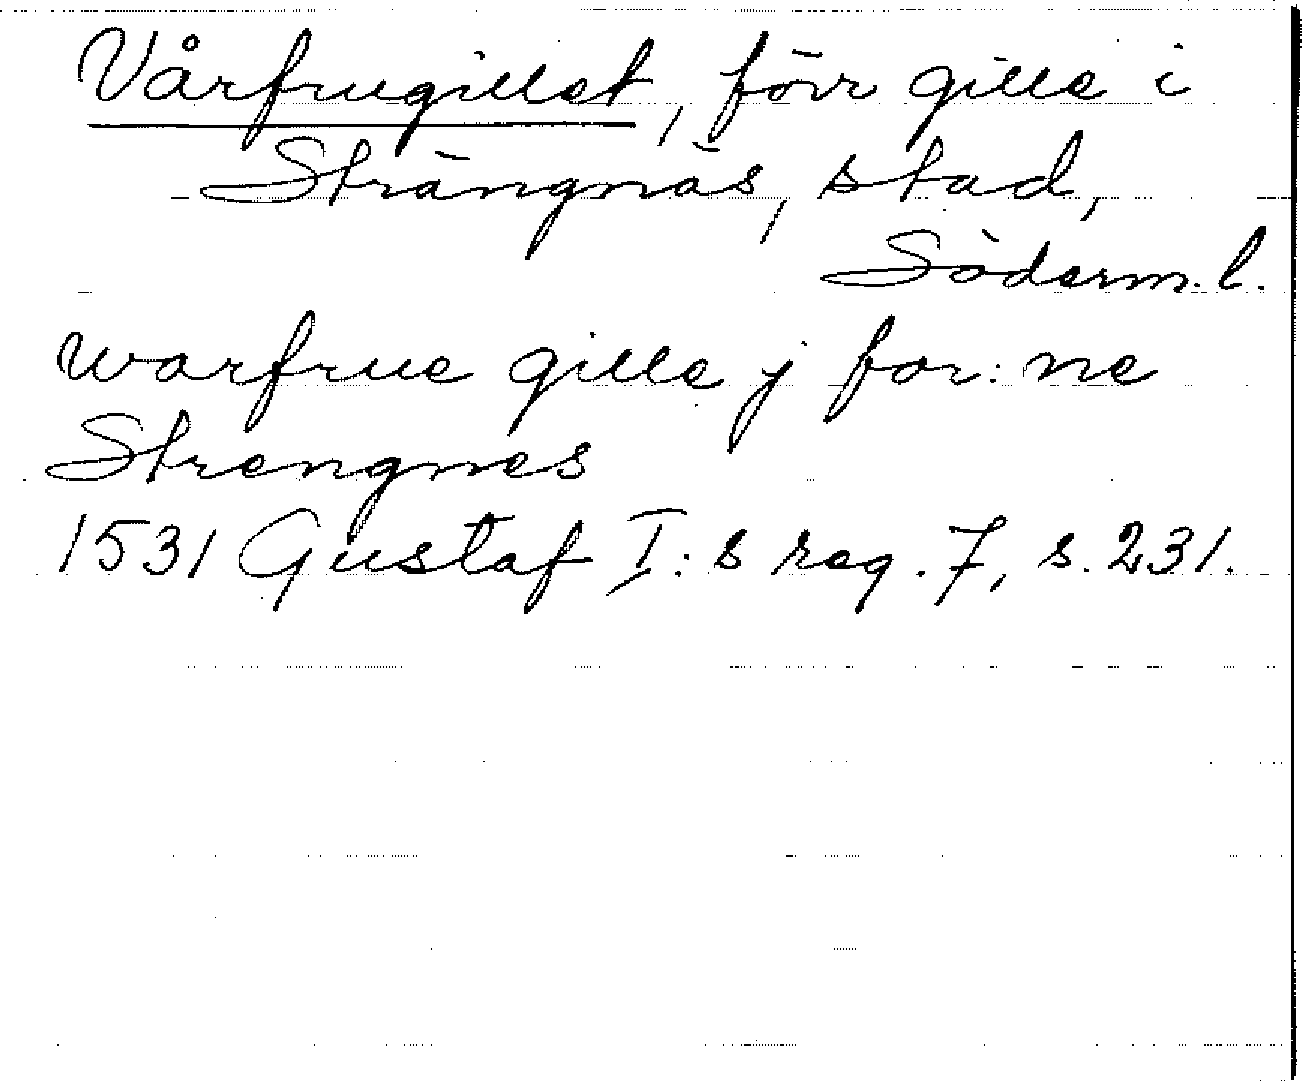 Vårfrugillet, förr gille i
Strängnäs, stad,
Söderm. l.
warfrue gille j for: ne
Strengnes
1531 Gustaf I: s reg. 7, s. 231.